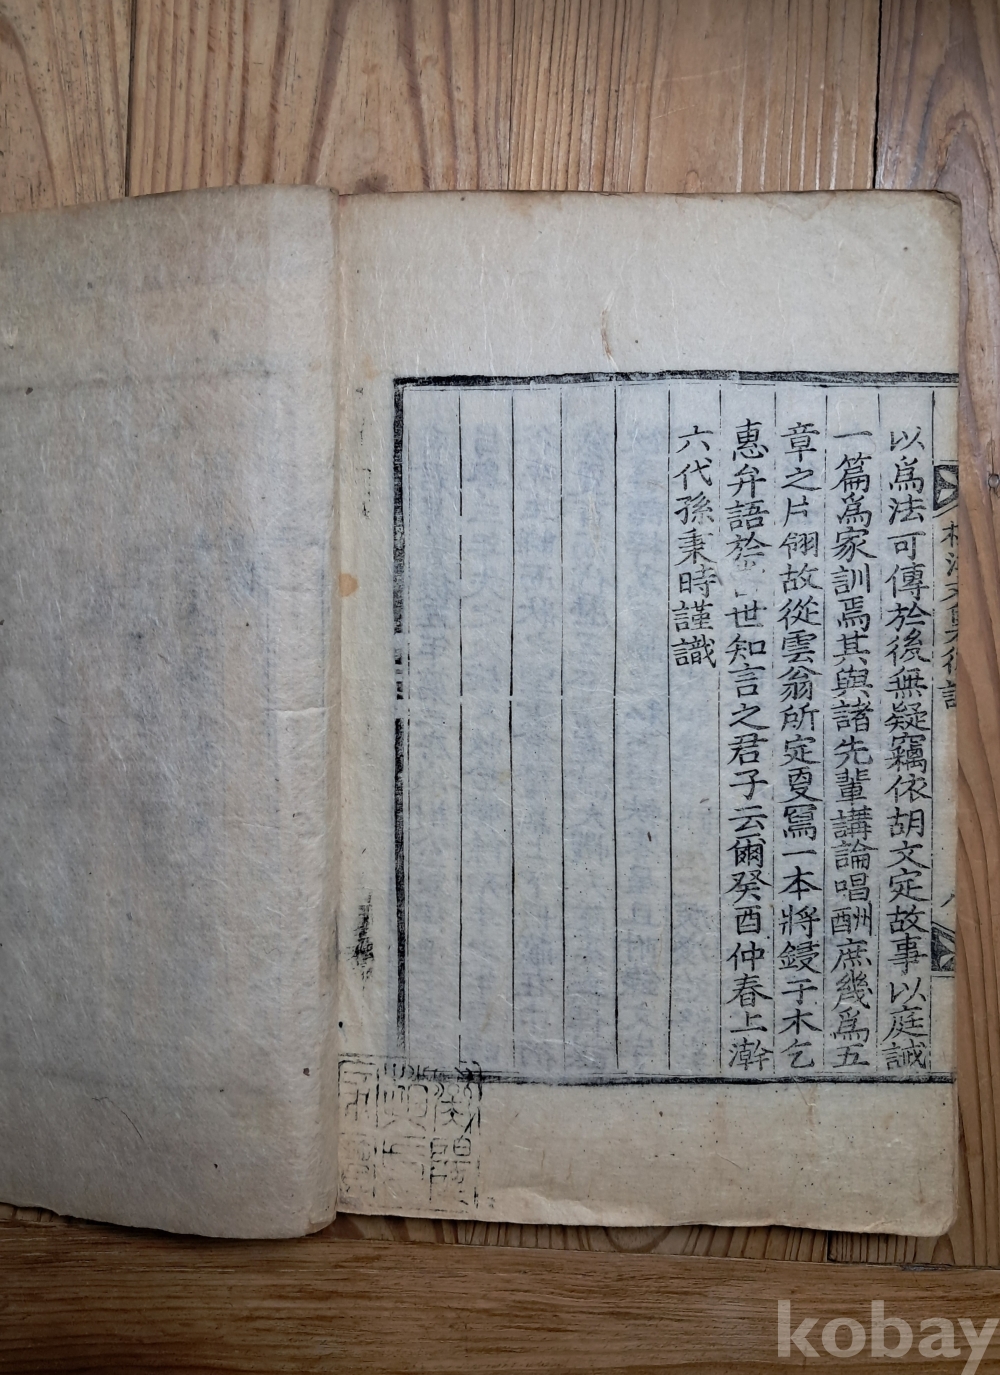 以爲法可傳於後無疑竊依胡文定故事以庭誡
一篇爲家訓焉其與諸先輩講論唱酬庶幾爲五
章之片翎故從雲翁所定夏寫一本將鋟于木乞
惠弁語於世知言之君子云爾癸酉仲春上澣
六代孫秉時謹識
kobay